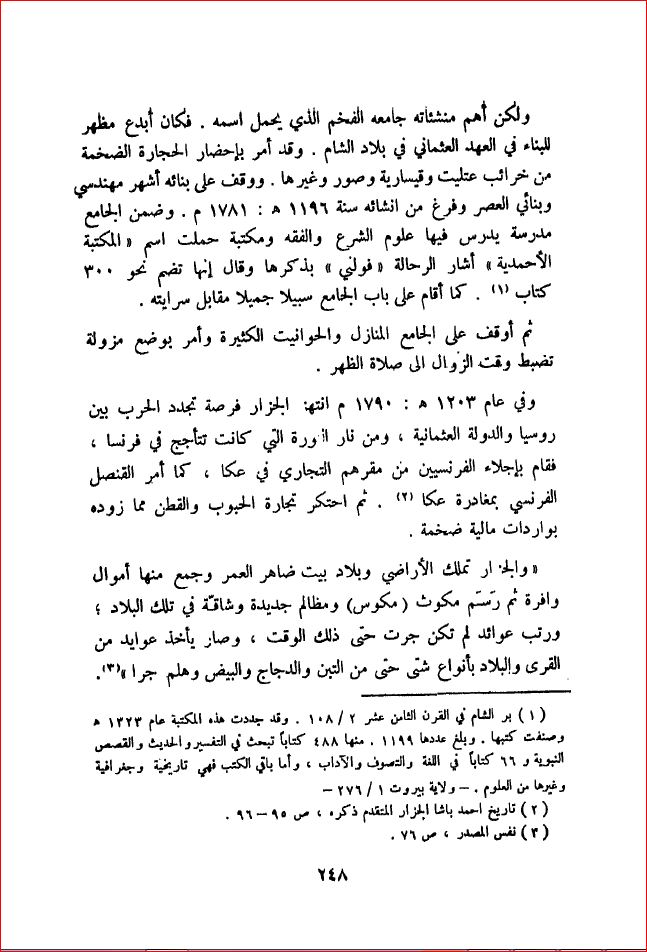 ولكن أهم منشئاته جامعه الفخم الذي يحمل اسمه . فكان أبدع مظهر
للبناء في العهد العثماني في بلاد الشام . وقد أمر بإحضار الحجارة الضخمة
من خرائب عتليت وقيسارية وصور وغيرها . ووقف على بنائه أشهر مهندسي
وبنائي العصر وفرغ من انشائه سنة ١١٩٦ ه : ١٧٨١ م . وضمن الجامع
مدرسة يدرس فيها علوم الشرع والفقه ومكتبة حملت اسم « المكتبة
الأحمدية » أشار الرحالة « فولني » بذكرها وقال إنها تضم نحو ٣٠٠
كتاب (١) . كما أقام على باب الجامع سبيلا جميلا مقابل سرايته .
ثم أوقف على الجامع المنازل والحوانيت الكثيرة وأمر بوضع مزولة
تضبط وقت الزوال الى صلاة الظهر .
وفي عام ١٢٠٣ ه : ١٧٩٠ م انتهز الجزار فرصة تجدد الحرب بين
روسيا والدولة العثمانية ، ومن نار الثورة التي كانت تتأجج في فرنسا ،
فقام بإجلاء الفرنسيين من مقرهم التجاري في عكا ، كما أمر القنصل
الفرنسي بمغادرة عكا (٢) . ثم احتكر تجارة الحبوب والقطن مما زوده
بواردات مالية ضخمة .
« والجزار تملك الأراضي وبلاد بيت ضاهر العمر وجمع منها أموال
وافرة ثم رَسَم مكوث ( مكوس ) ومظالم جديدة وشاقّة في تلك البلاد ؛
ورتب عوائد لم تكن جرت حتى ذلك الوقت ، وصار يأخذ عوايد من
القرى والبلاد بأنواع شتى حتى من التين والدجاج والبيض وهلم جرا »(٣).
( ١ ) بر الشام في القرن الثامن عشر ٢ / ١٠٨ . وقد جددت هذه المكتبة عام ١٣٢٣ ه
وصنفت كتبها . وبلغ عددها ١١٩٩ . منها ٤٨٨ كتاباً تبحث في التفسير والحديث والقصص
النبوية و ٦٦ كتاباً في اللغة والتصوف والآداب ، وأما باقي الكتب فهي تاريخية وجغرافية
وغيرها من العلوم . – ولاية بيروت ١ / ٢٧٦ –
( ٢ ) تاريخ احمد باشا الجزار المتقدم ذكره ، ص ٩٥ – ٩٦ .
( ٣ ) نفس المصدر ، ص ٧٦ .
٢٤٨